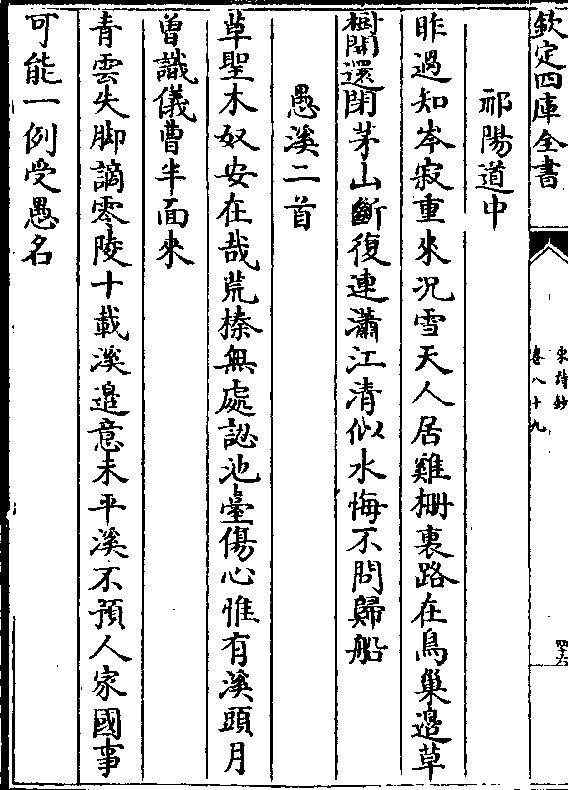 欽定四庫全書
宋詩鈔
卷八十九
祁陽道中
昨過知岑寂重來况雪天人居雞栅裏路在鳥巢邉草
樹開還閉茅山斷復連瀟江清似水悔不問歸船
愚溪二首
草聖木奴安在哉荒榛無處認池臺傷心惟有溪頭月
曽識儀曹半面來
青雲失脚謫零陵十載溪邉意未平溪不預人家國事
可能一例受愚名